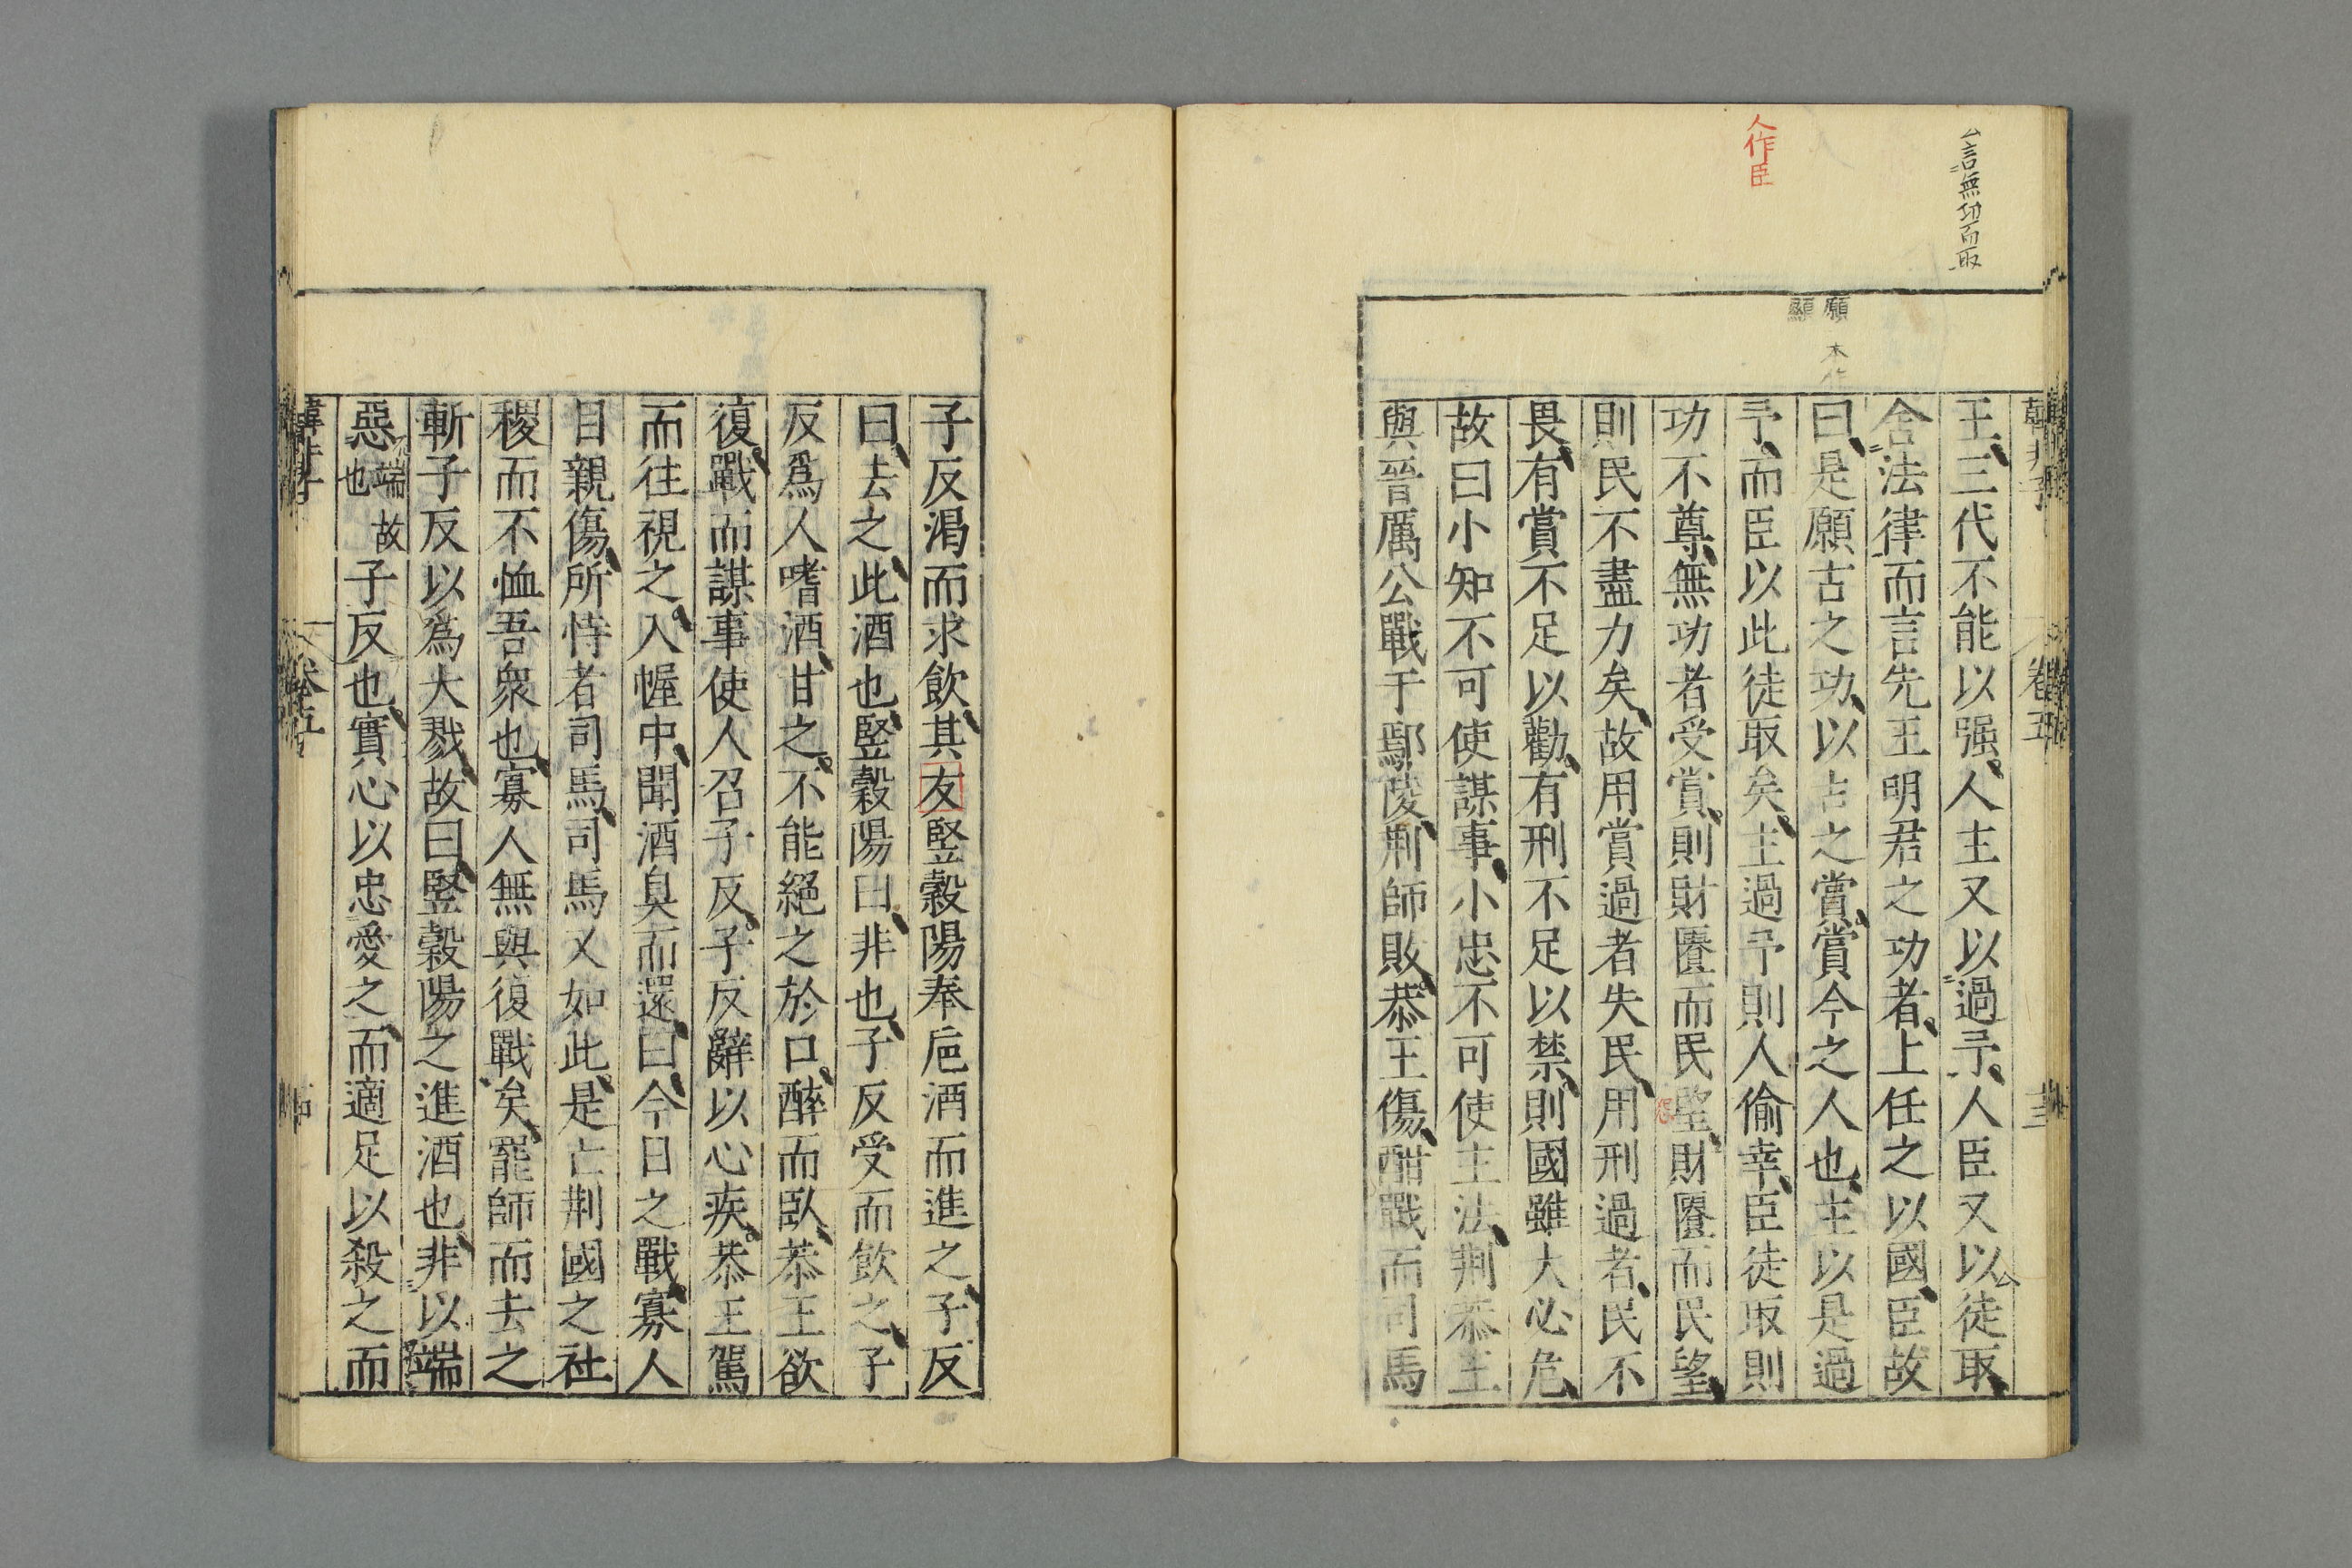 言無功而取
人作臣
願 本作
顯
韓非子 卷五 十三
王三代不能以强人主又以過予人臣又以徒取
舍法律而言先王明君之功者上任之以國臣故
曰是願古之功以古之賞賞今之人也主以是過
予而臣以此徒取矣主過予則人偷幸臣徒取則
功不尊無功者受賞則財匱而民望財匱而民望
則民不盡力矣故用賞過者失民用刑過者民不
畏有賞不足以勸有刑不足以禁則國雖大必危
故曰小知不可使謀事小忠不可使主法荆恭王
與晉厲公戰于鄢陵荆師敗恭王傷酣戰而司馬
子反渴而求飲其友竪穀陽奉巵酒而進之子反
曰去之此酒也竪穀陽曰非也子反受而飲之子
反爲人嗜酒甘之不能絕之於口醉而臥恭王欲
復戰而謀事使人召子反子反辭以心疾恭王駕
而往視之入幄中聞酒臭而還曰今日之戰寡人
目親傷所恃者司馬司馬又如此是亡荆國之社
稷而不恤吾衆也寡人無與復戰矣罷師而去之
斬子反以爲大戮故曰竪穀陽之進酒也非以端
惡端故也子反也實心以忠愛之而適足以殺之而
韓非子 卷五